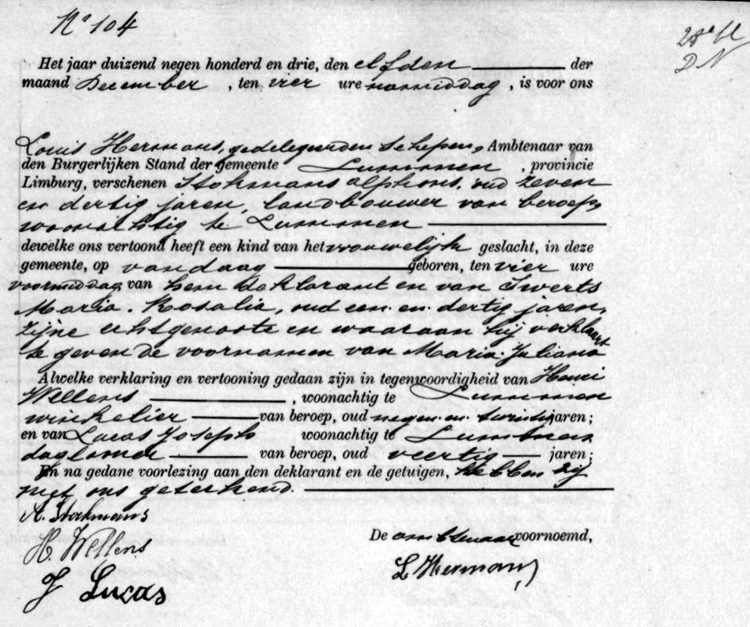 N° 104
Het jaar duizend negen honderd en drie, den elfden der
maand December, ten vier ure namiddag, is voor ons
Louis Hermans, gedelegeerden schepen, Ambtenaar van
den Burgerlijken Stand der gemeente Lummen, provincie
Limburg, verschenen Stokmans alphons, oud zeven
en dertig jaren, landbouwer van beroep,
woonachtig te Lummen
dewelke ons vertoond heeft een kind van het vrouwelijk geslacht, in deze
gemeente, op vandaag geboren, ten vier ure
voormiddag, van hem deklarant en van Swerts
Maria Rosalia, oud een en dertig jaren,
zijne echtgenoote en waaraan hij verklaart
te geven de voornamen van Maria Juliana
Alwelke verklaring en vertooning gedaan zijn in tegenwoordigheid van Henri
Wellens, woonachtig te Lummen
winkelier van beroep, oud negen en twintig jaren;
en van Lucas Joseph woonachtig te Lummen
dagloner van beroep, oud veertig jaren;
En na gedane voorlezing aan den deklarant en de getuigen, hebben zij
met ons geteekend.
A. Stokmans
H. Wellens
J Lucas
De ambtenaar voornoemd,
L Hermans